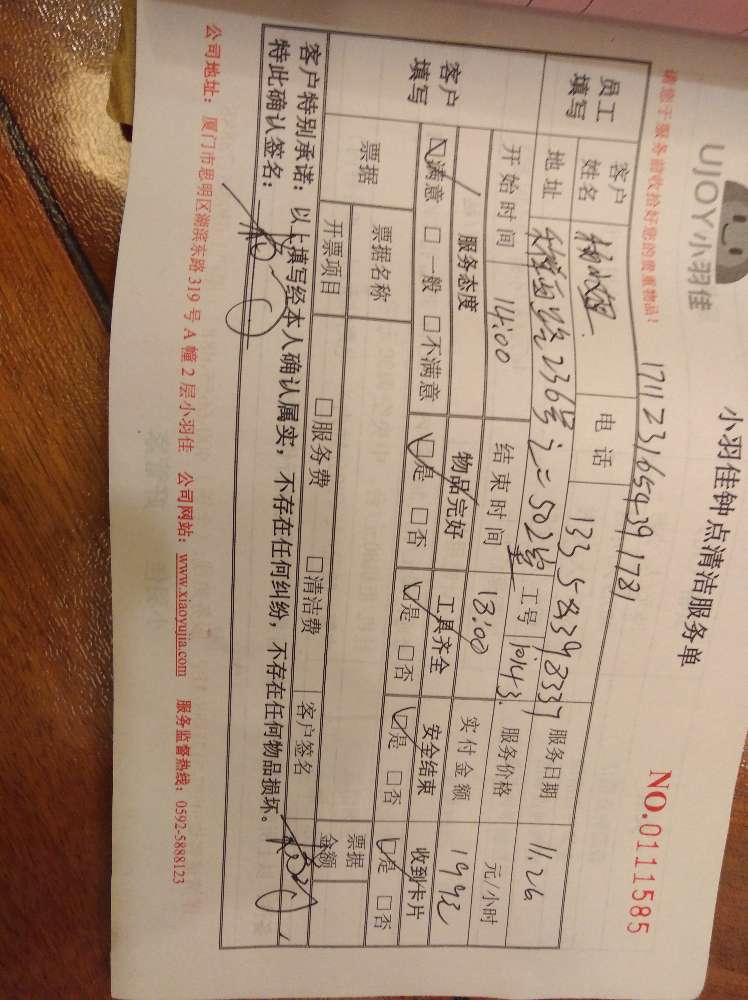 UJOY小羽佳
小羽佳钟点清洁服务单
NO.0111585
请您于服务前收拾好您的贵重物品!
1711231654391781
员工填写 客户姓名 电话 服务日期 11.26
地址 236号之二502室 工号 10143 服务价格 元/小时
开始时间 14:00 结束时间 18:00 实付金额
客户填写 服务态度 物品完好 工具齐全 安全结束 收到卡片
☑满意 □一般 □不满意 ☑是 □否 ☑是 □否 ☑是 □否 ☑是 □否
票据 票据名称 票据金额
开票项目 □服务费 □清洁费 客户签名
客户特别承诺:以上填写经本人确认属实,不存在任何纠纷,不存在任何物品损坏。
特此确认签名:
公司地址:厦门市思明区湖滨东路 319 号 A 幢 2 层小羽佳 公司网站:www.xiaoyujia.com 服务监督热线:0592-5888123